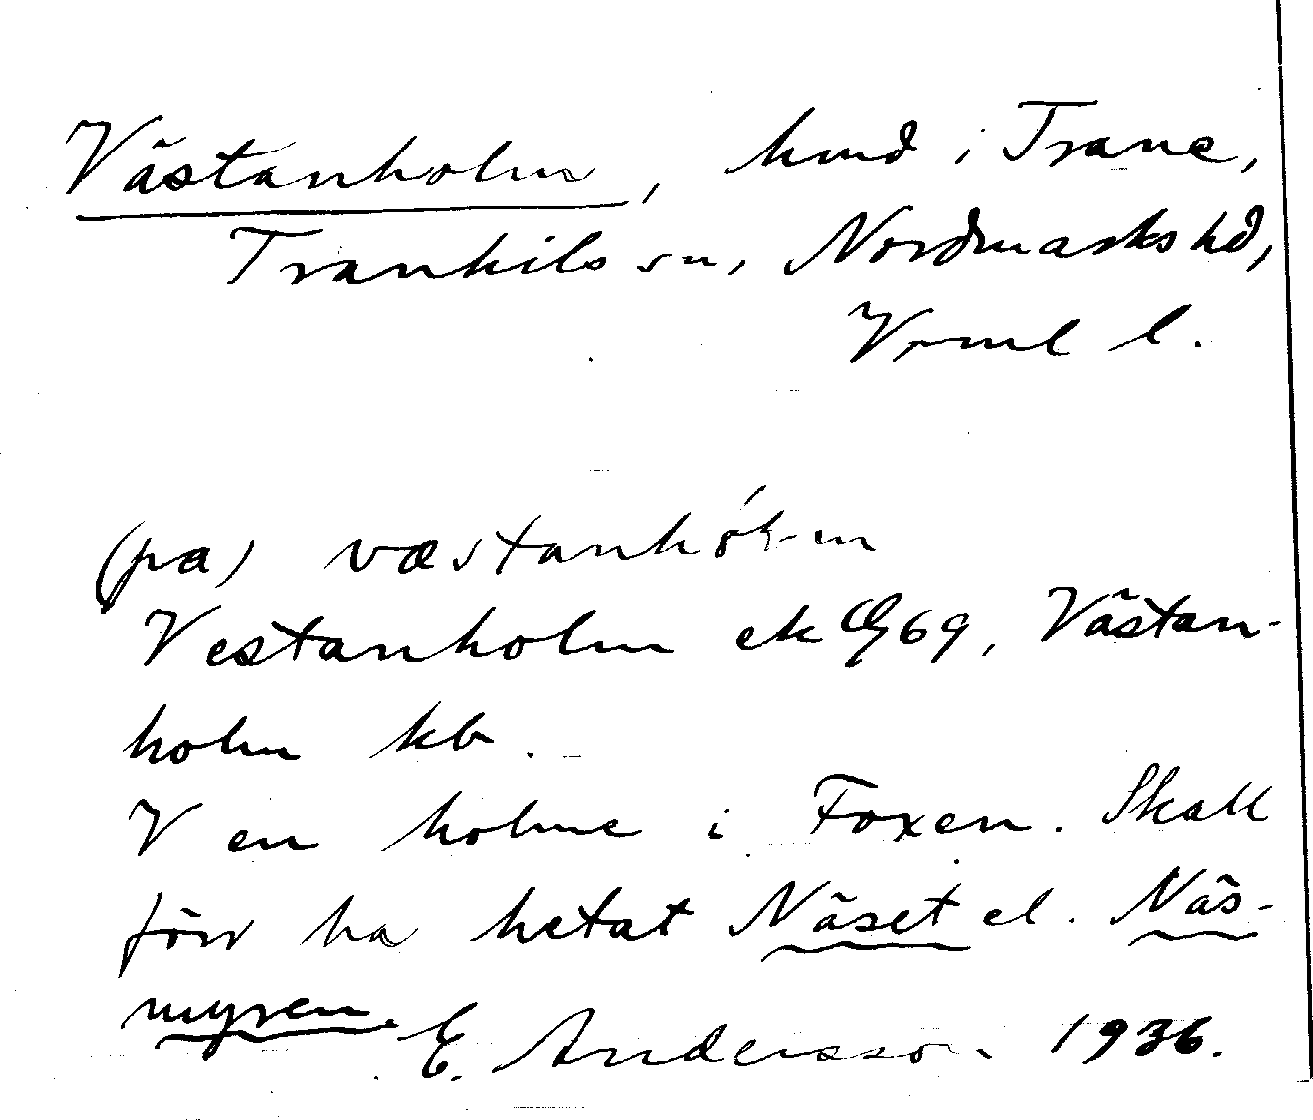 Västanholm, hmd i Trane,
Trankils sn, Nordmarks hd,
Vrml l.
(pa) væstanhóḷm
Vestanholm ek G 69, Västan-
holm kb.
V en holme i Foxen. Skall
förr ha hetat Näset el. Näs-
myren. E. Andersson 1936.